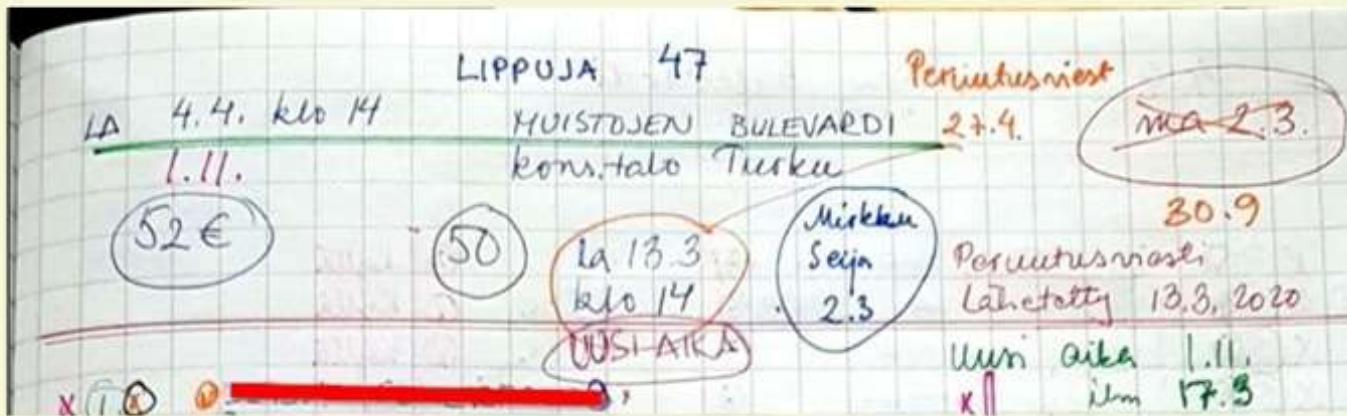 LIPPUJA 47
Peruutusviest
LA 4.4. klo 14 MUISTOJEN BULEVARDI 27.4. ma 2.3.
1.11. kons.talo Turku
30.9
52€ 50 la 13.3 Mirkku
klo 14 Seija
2.3
Peruutusviesti
Lähetetty 13.3.2020
UUSI AIKA
Uusi aika 1.11.
ilm 17.3